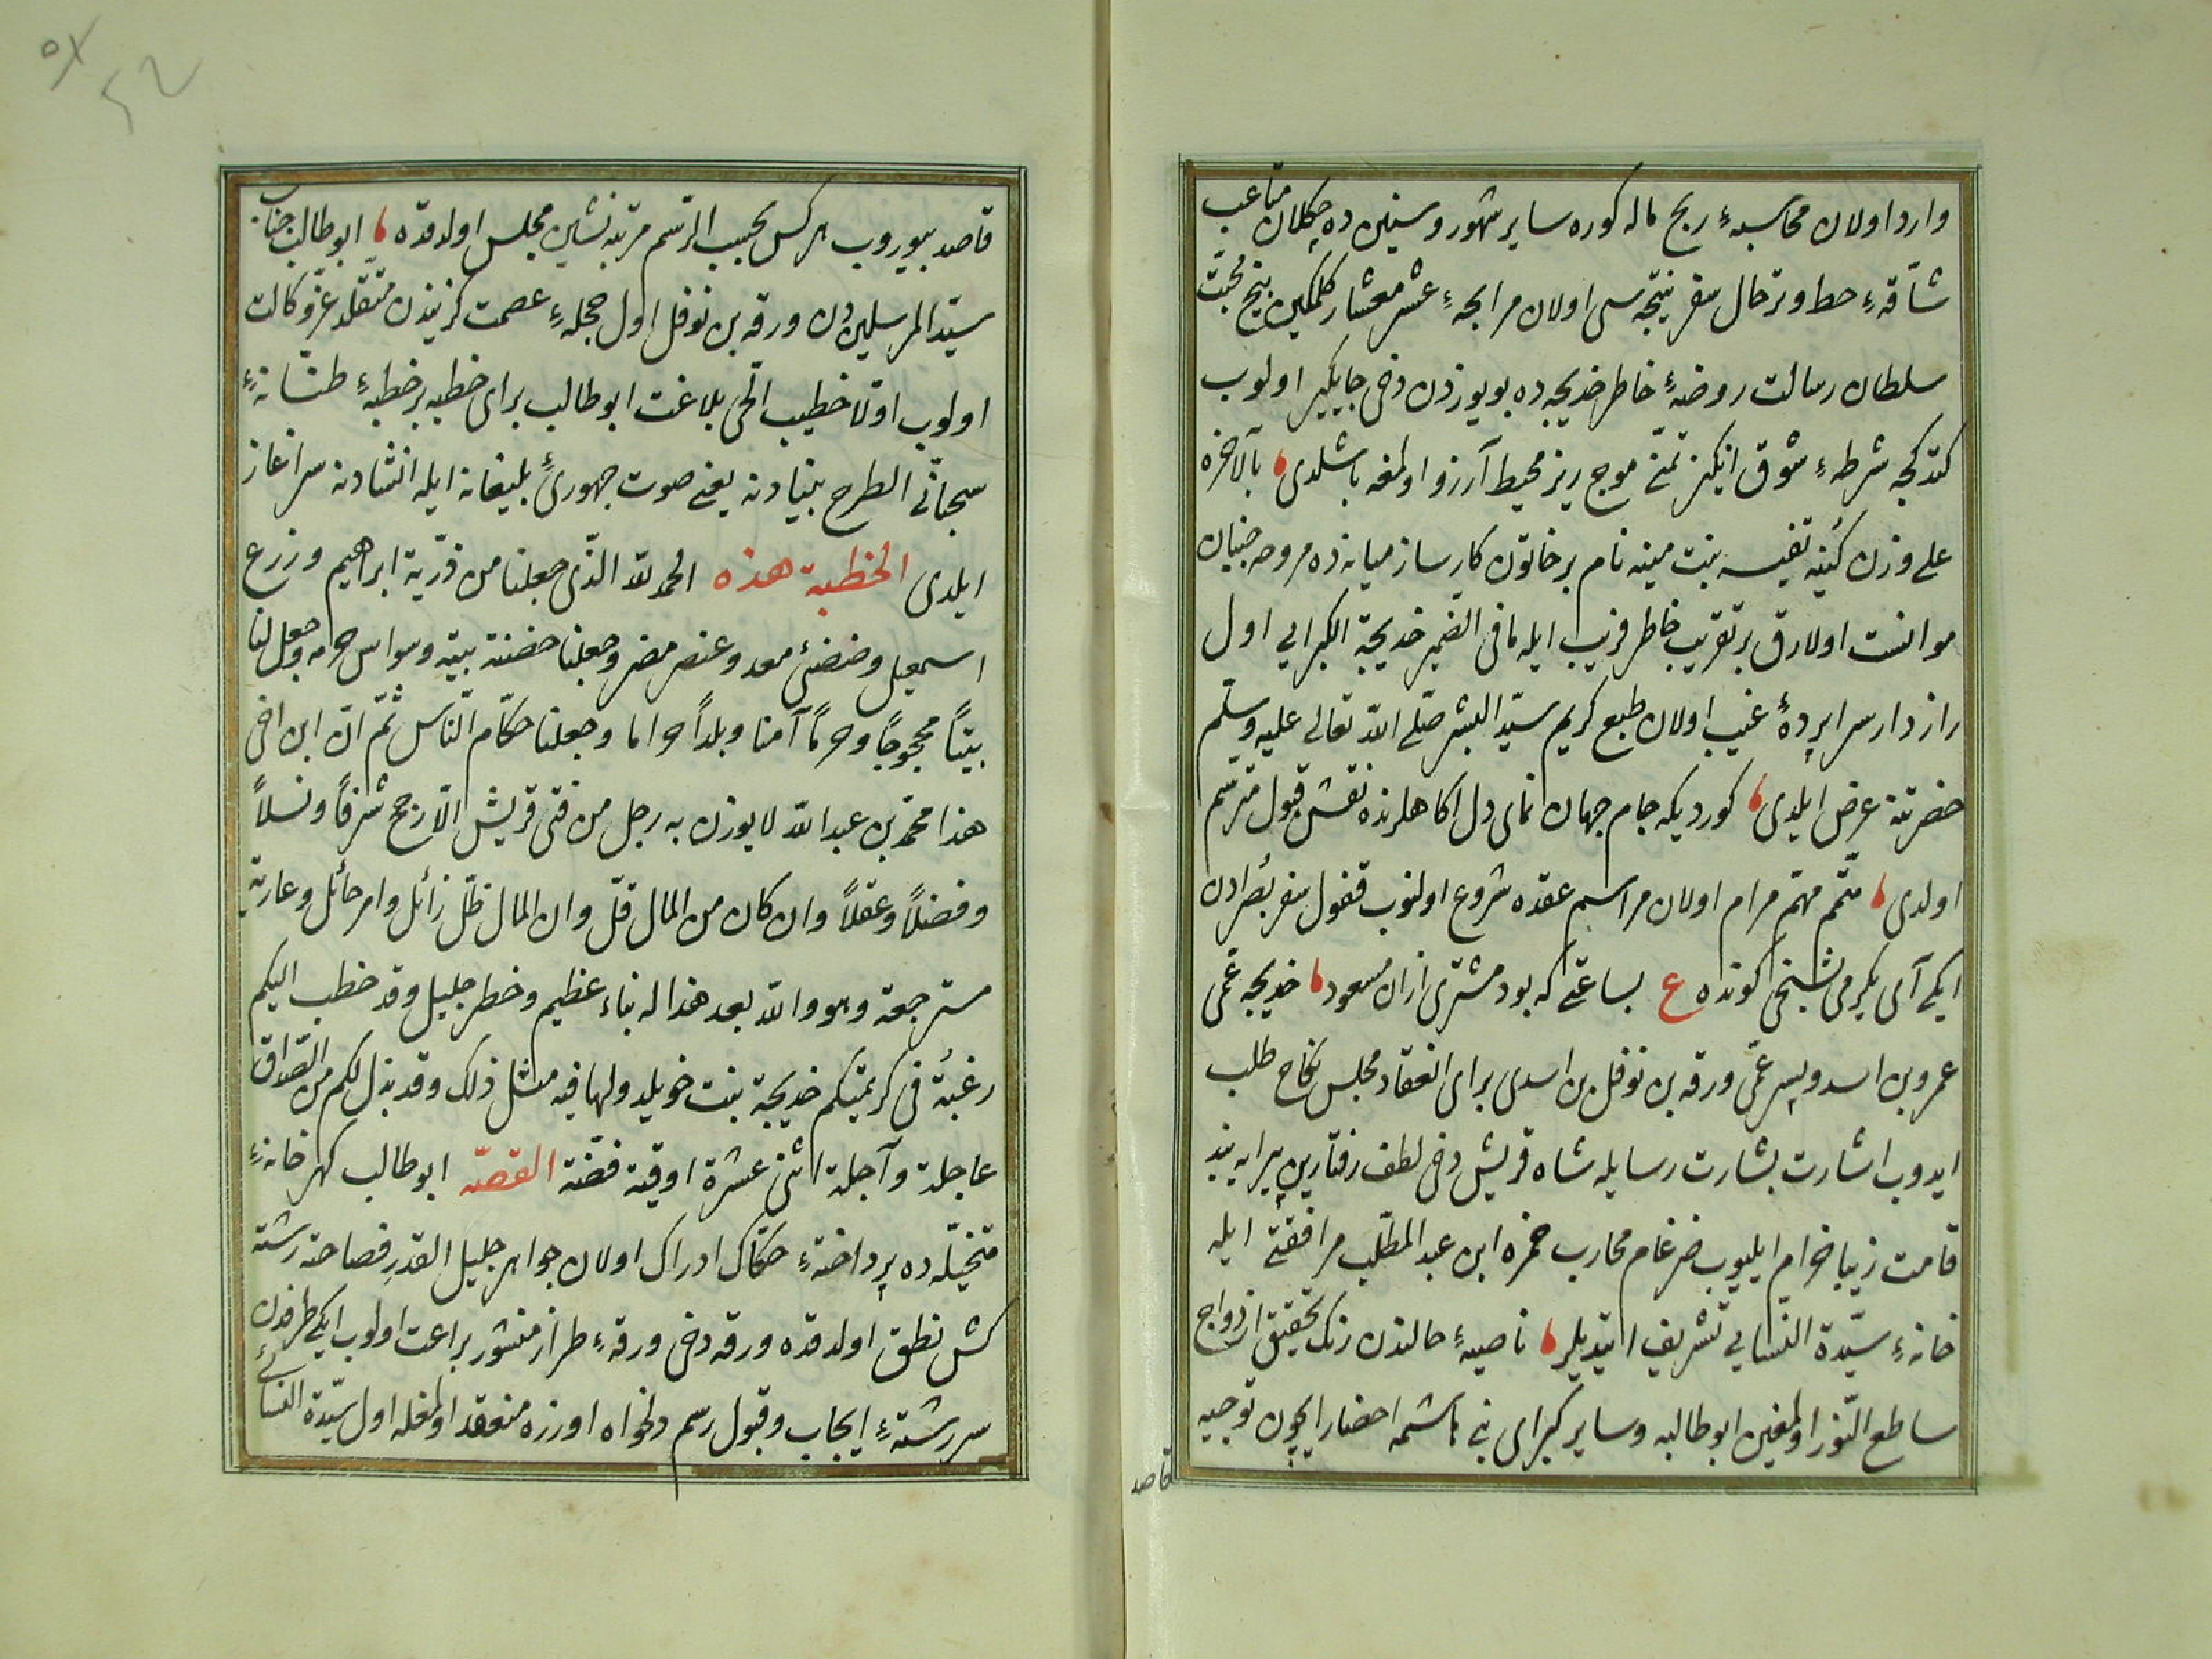 وارد اولان محاسبهٔ ربح ماله كوره ساير شهور و سنينده چكلان متاعب
شاقّهٔ حط و ترحال سفر نتيجه‌سى اولان مرابحهٔ عشر معشار كلمكين بيخ محبّت
سلطان رسالت روضهٔ خاطر خديجه‌ده بو يوزدن دخى جايكير اولوب
كتدكجه شرطهٔ شوق انكيز تمنّى موج ريز محيط آرزو اولمغه باشلدى، بالآخره
على وزن كُنيه نفيسه بنت مينه نام بر خاتون كارساز ميانه‌ده مروحه جنبان
موانست اولارق بر تقريب خاطر فريب ايله ما فى الضمير خديجة الكبرايى اول
رازدار سرا پردهٔ غيب اولان طبع كريم سيّد البشر صلّى الله تعالى عليه وسلّم
حضرتنه عرض ايلدى، كورديكه جام جهان نماى دل آكاهلرنده نقش قبول مترسّم
اولدى، متمّم مهمّ مرام اولان مراسم عقده شروع اولنوب قفول سفر بُصرادن
ايكى آى يكرمى بشنجى كونده ع بساعتى كه بود مشترى ازان مسعود، خديجه عمّى
عمرو بن اسد و پسر عمّى ورقه بن نوفل بن اسدى براى انعقاد مجلس نكاح طلب
ايدوب اشارت بشارت رسايله شاه قريش دخى لطف رفتارين پيرايه بند
قامت زيبا خرام ايليوب ضرغام محارب حمزه ابن عبد المطّلب مرافقتى ايله
خانهٔ سيّدة النّسايى تشريف ايتديلر، ناصيهٔ حالندن رنك تحقيق ازدواج
ساطع النّور اولمغين ابو طالبه و ساير كبراى بنى هاشمه احضار ايچون توجيه
قاصد
قاصد بيوروب هركس بحسب الرّسم مرتبه نشين مجلس اولدقده، ابو طالب جناب
سيّد المرسليندن ورقه بن نوفل اول حجلهٔ عصمت كزيندن متقلّد عزّ وكالت
اولوب اوّلا خطيب الحىّ بلاغت ابو طالب براى خطبه بر خطبهٔ طنّانهٔ
سحبانّى الطرح بنيادنه يعنى صوت جهورئ بليغانه ايله انشادنه سر آغاز
ايلدى الخطبة هذه الحمد لله الّذى جعلنا من ذرّية ابراهيم وزرع
اسمعيل وضئضئ معد وعنصر مضر وجعلنا حضنة بيته وسواس حرمه وجعل لنا
بيتاً محجوجاً وحرماً آمنا وبلداً حراما وجعلنا حكّام النّاس ثمّ انّ ابن اخى
هذا محمّد بن عبد الله لا يوزن به رجل من فتى قريش الّا رجح شرفاً ونسلاً
وفضلاً وعقلاً وان كان من المال قلّ وان المال ظلّ زائل وامر حائل وعارية
مسترجعة وهو والله بعد هذا له نباء عظيم وخطر جليل وقد خطب اليكم
رغبُة فى كريمتكم خديجة بنت خويلد ولها فيه مثل ذلك وقد بذل لكم من الصّداق
عاجلة وآجلة اثنى عشرة اوقية فضّة القصّه ابو طالب كهر خانهٔ
متخيّله‌ده پرداختهٔ حكّاك ادراك اولان جواهر جليل القدر فصاحته رشته
كش نطق اولدقده ورقه دخى ورقهٔ طراز منشور براعت اولوب ايكى طرفدن
سررشتهٔ ايجاب و قبول رسم دلخواه اوزره منعقد اولمغله اول سيّدة النّسائ